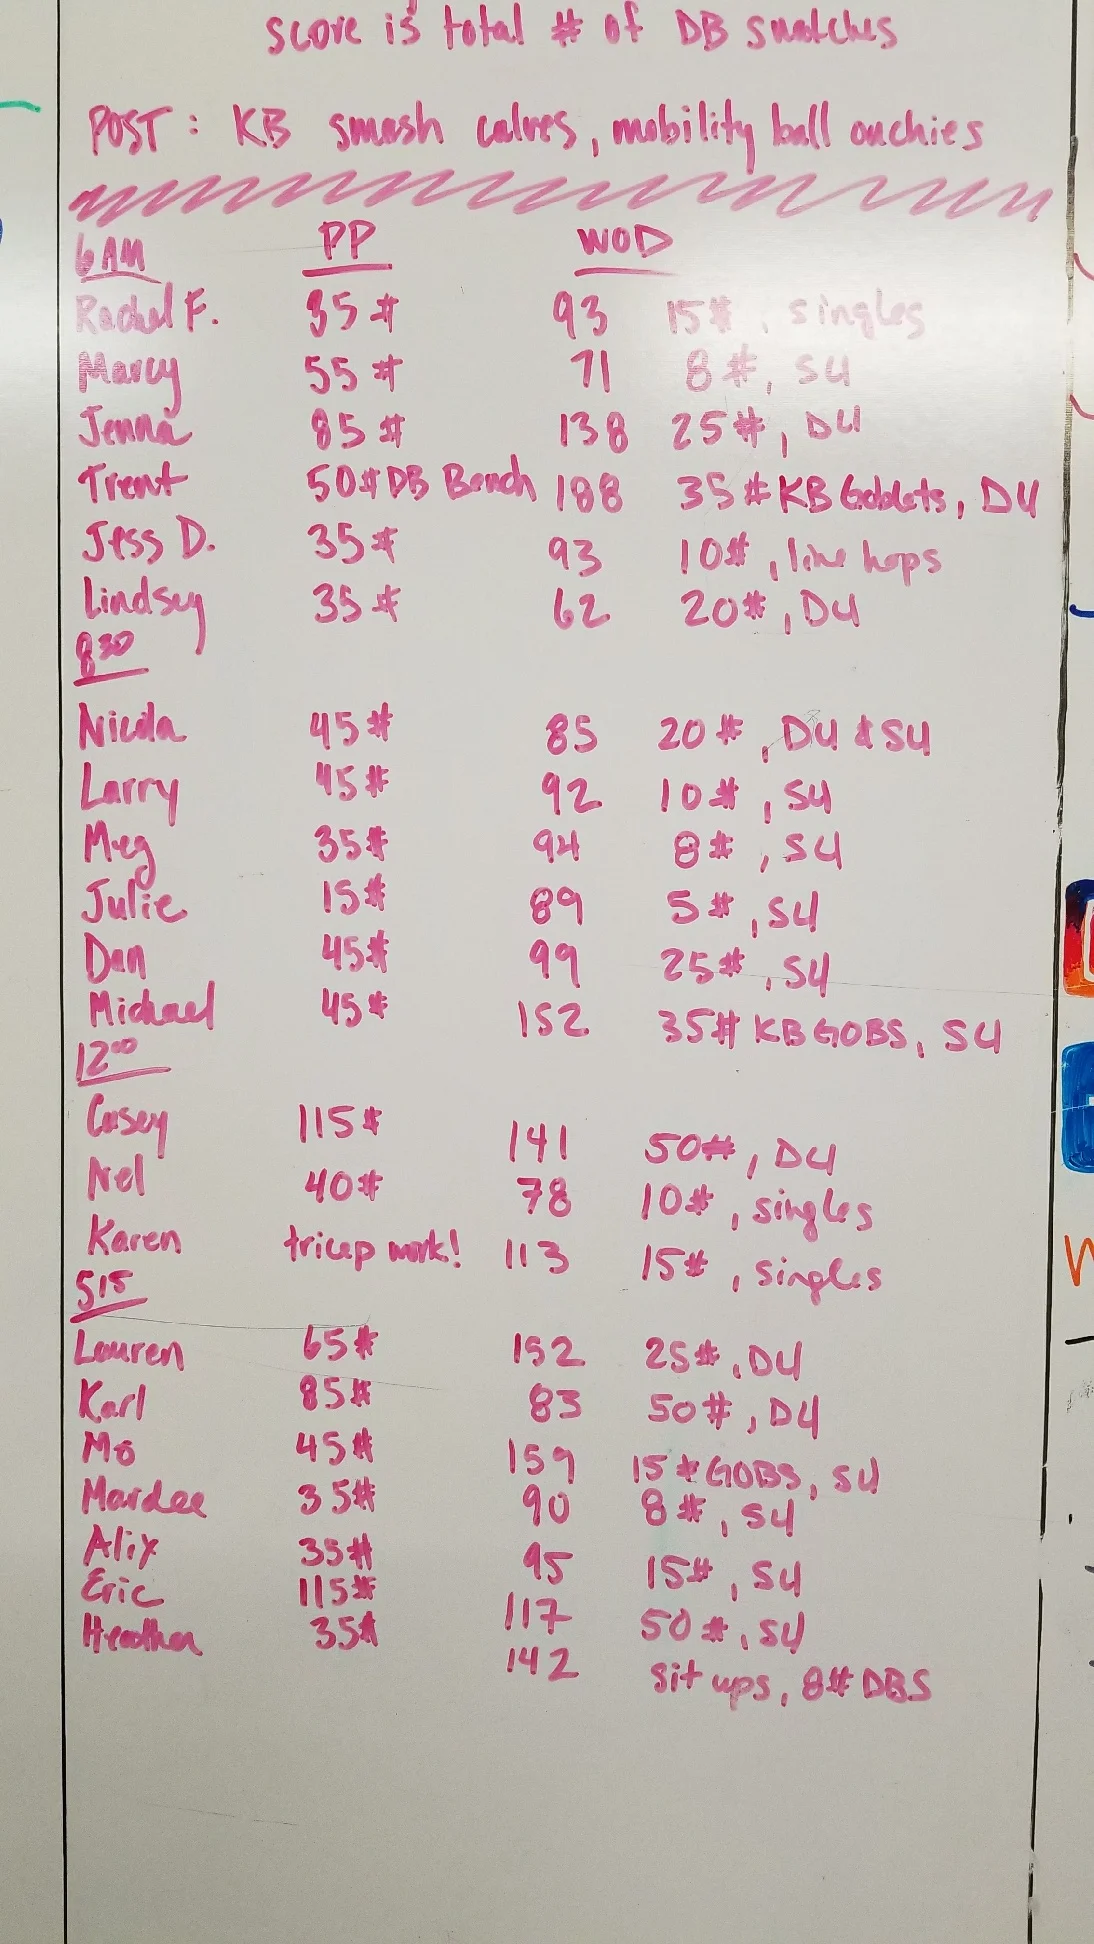 score is total # of DB snatches
POST: KB smash calves, mobility ball ouchies
6AM PP WOD
Rachel F. 35# 93 15#, singles
Marcy 55# 71 8#, SU
Jenna 85# 138 25#, DU
Trent 50# DB Bench 188 35# KB Goblets, DU
Jess D. 35# 93 10#, line hops
Lindsey 35# 62 20#, DU
830
Nicola 45# 85 20#, DU & SU
Larry 45# 92 10#, SU
Meg 35# 94 8#, SU
Julie 15# 89 5#, SU
Dan 45# 99 25#, SU
Michael 45# 152 35# KB GOBS, SU
1200
Casey 115# 141 50#, DU
Nel 40# 78 10#, singles
Karen tricep work! 113 15#, singles
515
Lauren 65# 152 25#, DU
Karl 85# 83 50#, DU
Mo 45# 159 15# GOBS, SU
Mardee 35# 90 8#, SU
Alix 35# 95 15#, SU
Eric 115# 117 50#, SU
Heather 35# 142 sit ups, 8# DBS